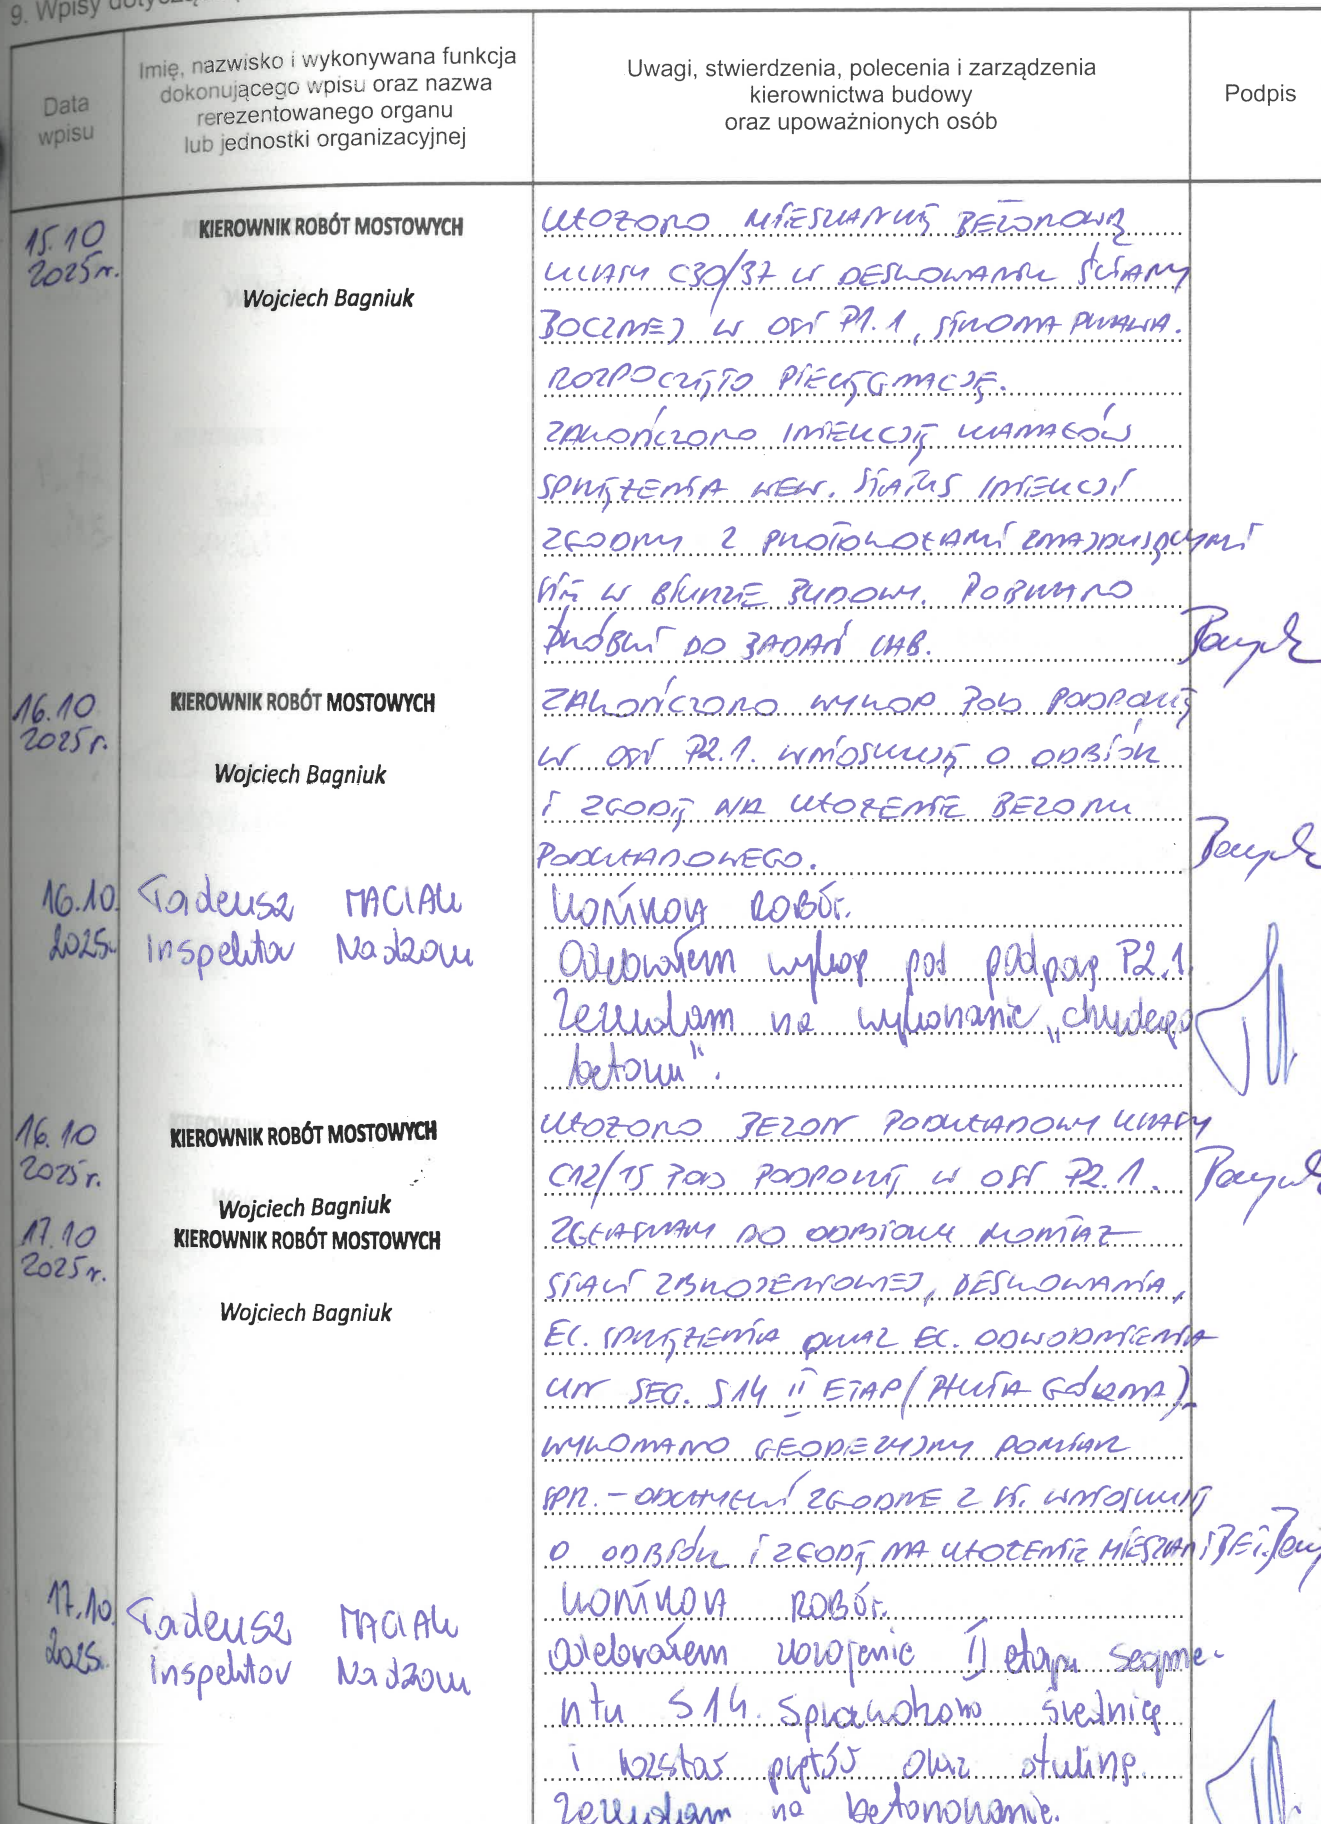 9. Wpisy
Data
wpisu
Imię, nazwisko i wykonywana funkcja
dokonującego wpisu oraz nazwa
rerezentowanego organu
lub jednostki organizacyjnej
Uwagi, stwierdzenia, polecenia i zarządzenia
kierownictwa budowy
oraz upoważnionych osób
Podpis
15.10
2025r.
KIEROWNIK ROBÓT MOSTOWYCH
Wojciech Bagniuk
UŁOŻONO MIESZANKĘ BETONOWĄ
KLASY C30/37 W DESKOWANIU ŚCIANY
BOCZNEJ W OSI P1.1, STRONA PRAWA.
ROZPOCZĘTO PIELĘGNACJĘ.
ZAKOŃCZONO INIEKCJĘ KANAŁÓW
SPRĘŻENIA WEW. STATUS INIEKCJI
ZGODNY Z PROTOKOŁAMI ZNAJDUJĄCYMI
SIĘ W BIURZE BUDOWY. POBRANO
PRÓBKI DO BADAŃ LAB.
16.10
2025r.
KIEROWNIK ROBÓT MOSTOWYCH
Wojciech Bagniuk
ZAKOŃCZONO WYKOP POD PODPORĘ
W OSI P2.1. WNIOSKUJĘ O ODBIÓR
I ZGODĘ NA UŁOŻENIE BETONU
PODKŁADOWEGO.
16.10.
2025r.
Tadeusz MACIAK
Inspektor Nadzoru
KONTROLA ROBÓT.
Odebrałem wykop pod podporę P2.1.
Zezwalam na wykonanie „chudego
betonu".
16.10
2025r.
KIEROWNIK ROBÓT MOSTOWYCH
Wojciech Bagniuk
UŁOŻONO BETON PODKŁADOWY KLASY
C12/15 POD PODPORĘ W OSI P2.1.
17.10
2025r.
KIEROWNIK ROBÓT MOSTOWYCH
Wojciech Bagniuk
ZGŁASZAM DO ODBIORU MONTAŻ
STALI ZBROJENIOWEJ, DESKOWANIA,
EL. SPRĘŻENIA ORAZ EL. ODWODNIENIA
SEG. S14 II ETAP (PŁYTA GÓRNA).
WYKONANO GEODEZYJNY POMIAR
SPR. - ODCHYŁKI ZGODNE Z WNIOSKUJĘ
O ODBIÓR I ZGODĘ NA UŁOŻENIE MIESZANKI BET.
17.10.
2025r.
Tadeusz MACIAK
Inspektor Nadzoru
KONTROLA ROBÓT.
Odebrałem zbrojenie II etapu segme-
ntu S14. Sprawdzono średnicę
i rozstaw prętów oraz otulinę.
Zezwalam na betonowanie.